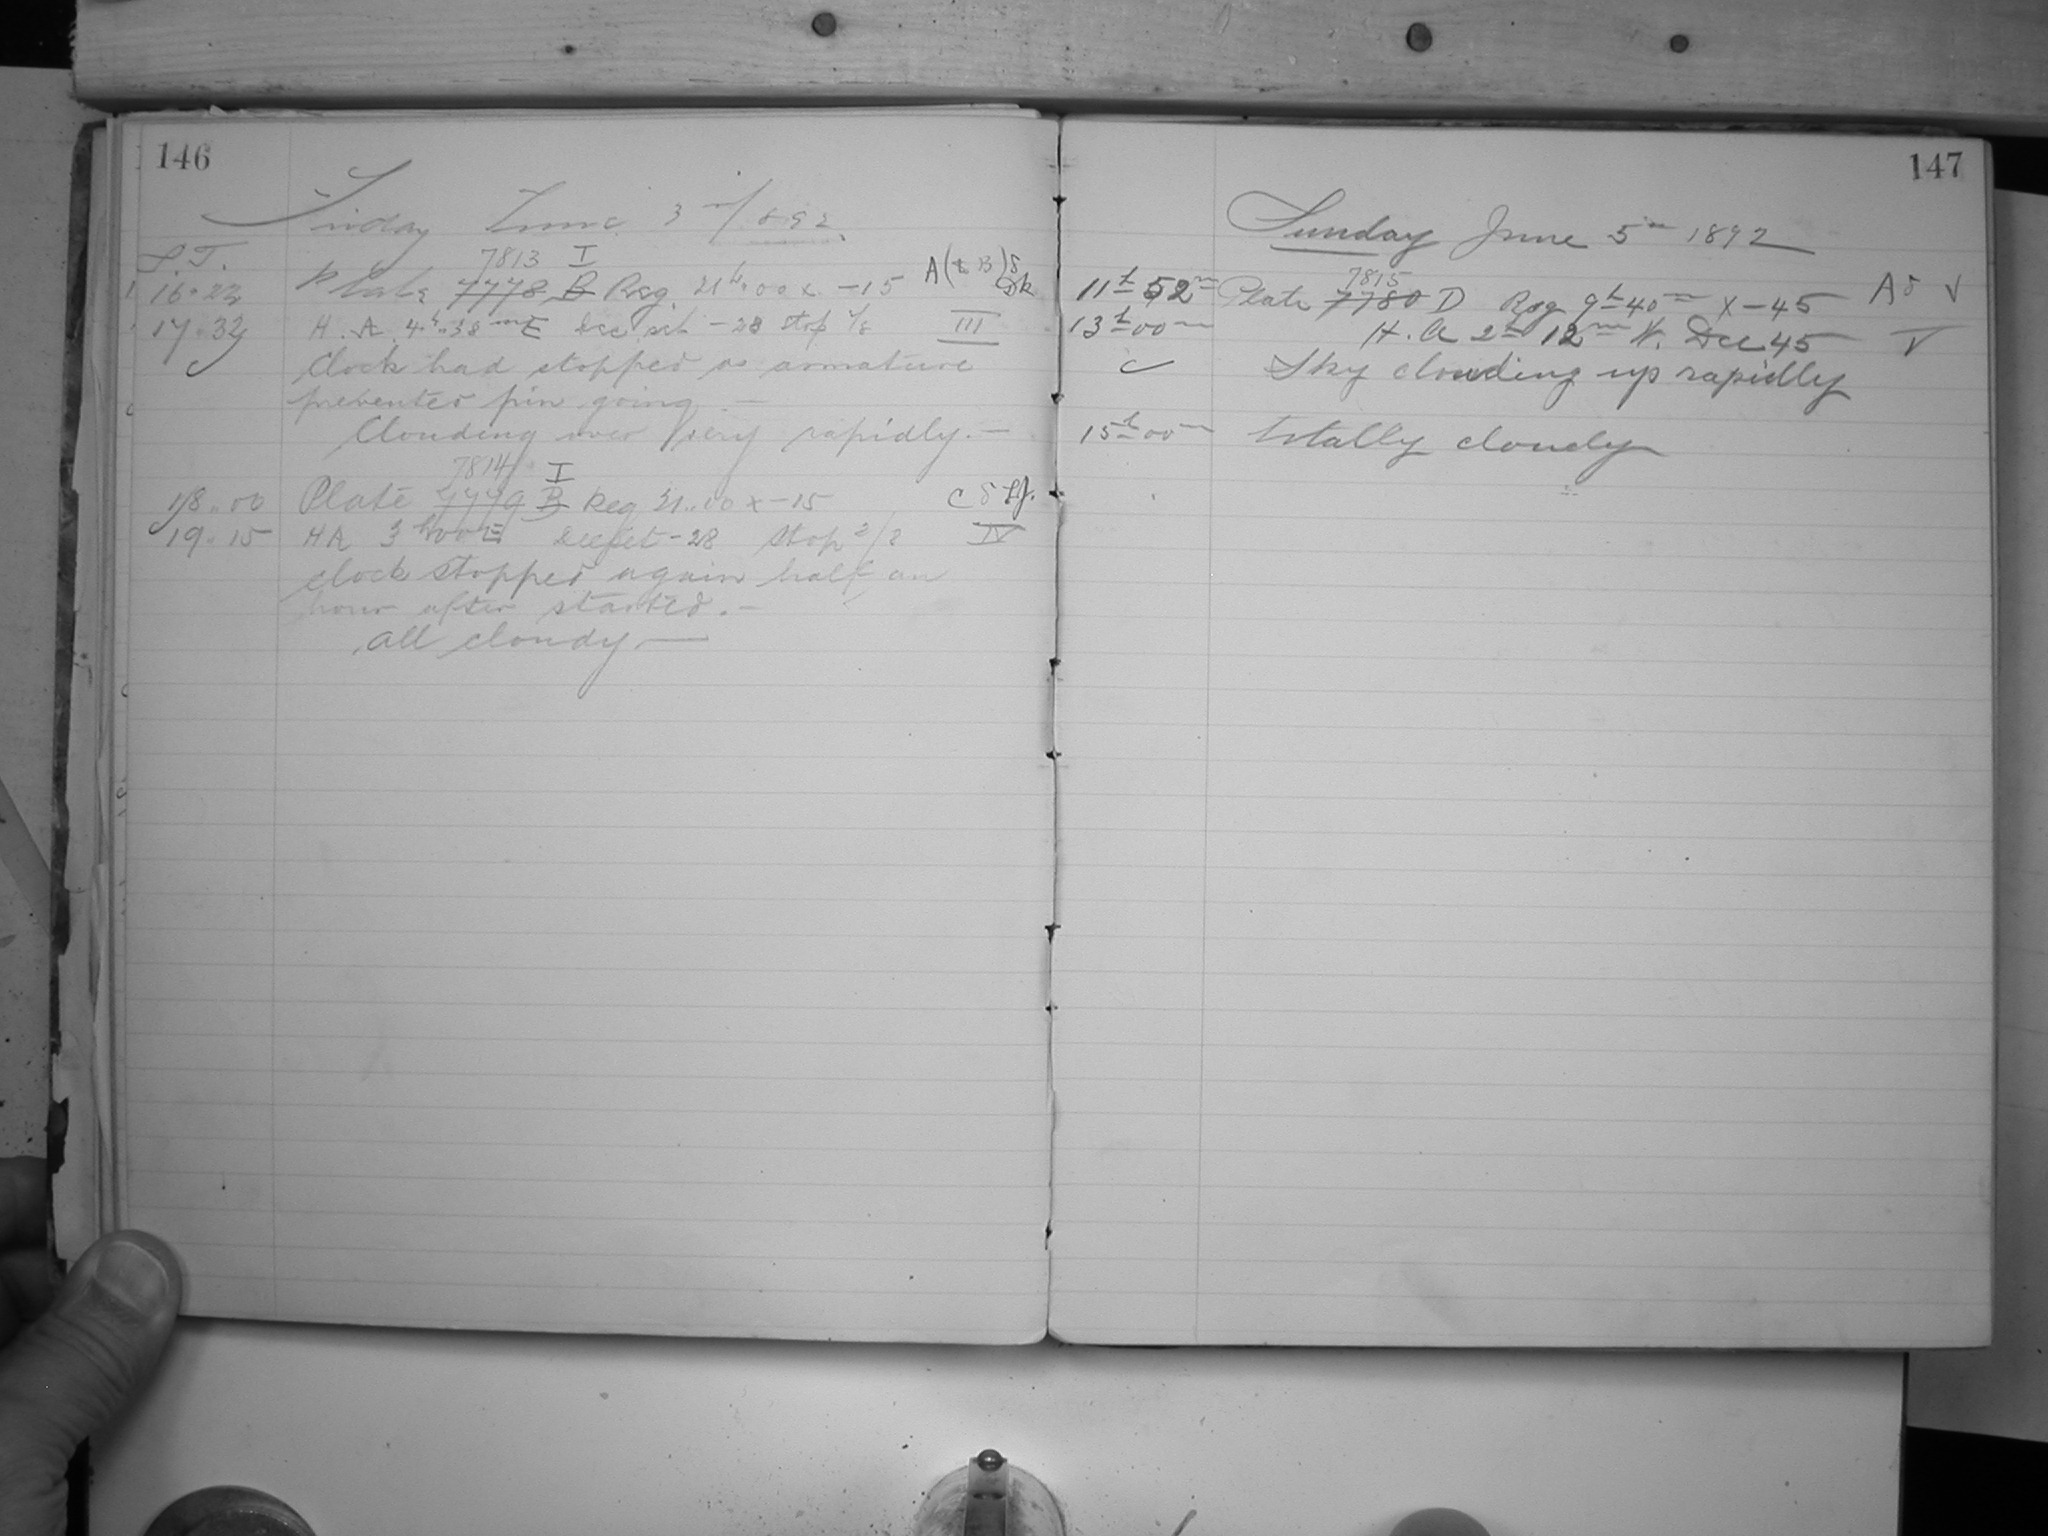 146
Friday June 3rd/1892.
S.T.
7813 I
16.22 Plate 7778 B Reg. 21h.00 x -15 A(t B)δ Dk
17.32 H.A. 4h.38m E Dec set -28 stop 1/8 III
Clock had stopped as armature
prevented pin going. —
Clouding over very rapidly. —
7814 I
18.00 Plate 7779 B Reg 21..10 x -15 C δ
19.15 HA 3h00E Dec set -28 stop 2/8 IV
clock stopped again half an
hour after started. —
all cloudy —
147
Sunday June 5th 1892
7815
11h 52m Plate 7780 D Reg 9h 40m X -45 A δ √
13h 00m H.A 2h 12m W. Dec 45 V
Sky clouding up rapidly
15h 00m totally cloudy